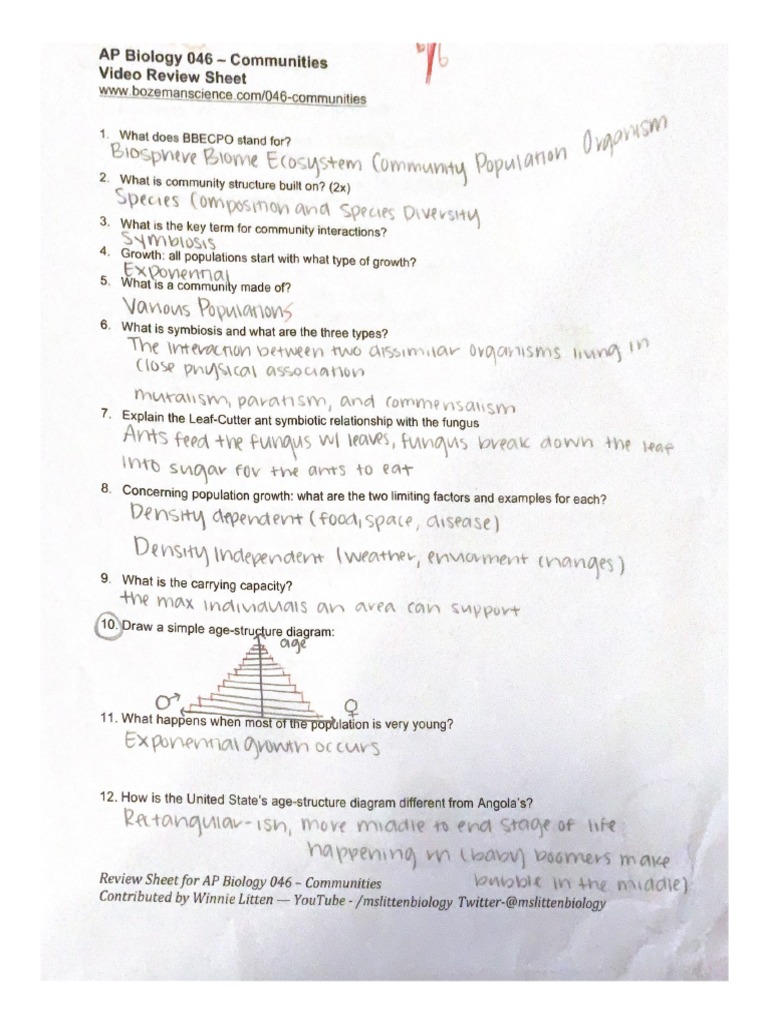 AP Biology 046 – Communities
Video Review Sheet
www.bozemanscience.com/046-communities
1. What does BBECPO stand for?
Biosphere Biome Ecosystem Community Population Organism
2. What is community structure built on? (2x)
Species Composition and Species Diversity
3. What is the key term for community interactions?
Symbiosis
4. Growth: all populations start with what type of growth?
Exponential
5. What is a community made of?
Various Populations
6. What is symbiosis and what are the three types?
The interaction between two dissimilar organisms living in
close physical association
mutalism, paratism, and commensalism
7. Explain the Leaf-Cutter ant symbiotic relationship with the fungus
Ants feed the fungus w/ leaves, fungus break down the leaf
into sugar for the ants to eat
8. Concerning population growth: what are the two limiting factors and examples for each?
Density dependent (food, space, disease)
Density Independent (weather, enviorment changes)
9. What is the carrying capacity?
the max individuals an area can support
10. Draw a simple age-structure diagram:
age
♂ ♀
11. What happens when most of the population is very young?
Exponential growth occurs
12. How is the United State's age-structure diagram different from Angola's?
Rectangular-ish, more middle to end stage of life
happening in (baby boomers make
bubble in the middle)
Review Sheet for AP Biology 046 – Communities
Contributed by Winnie Litten — YouTube - /mslittenbiology Twitter-@mslittenbiology